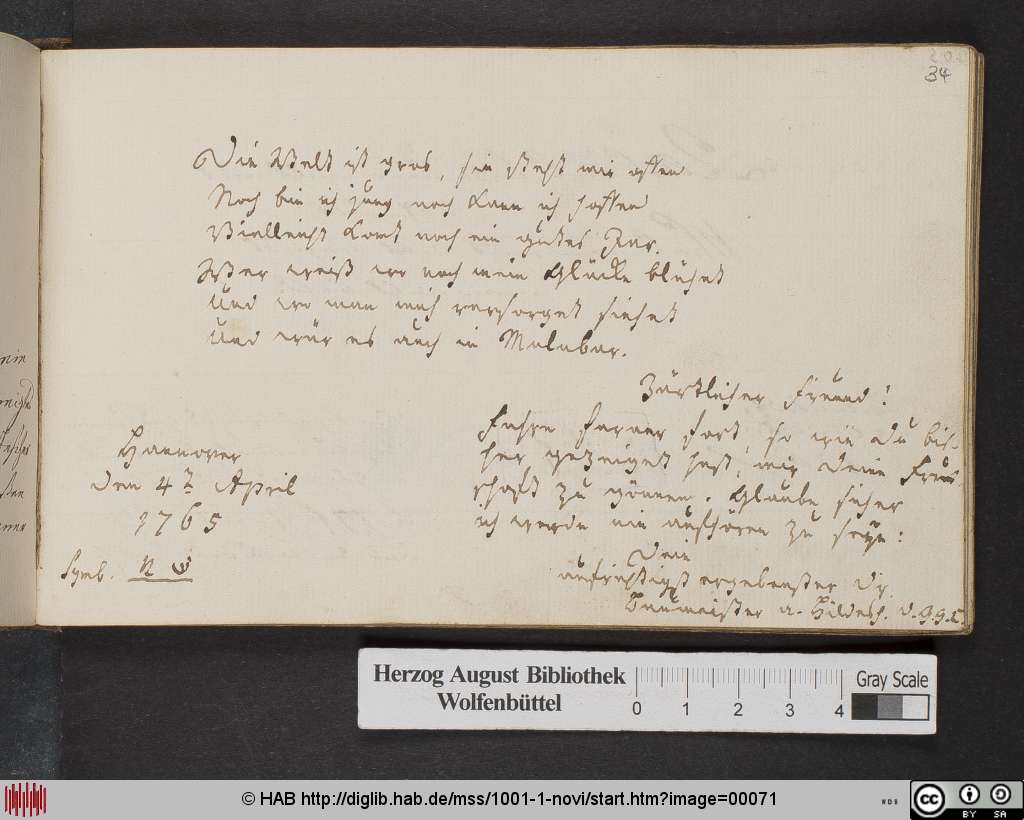 34
Die Welt ist gros, sie steht mir offen
Noch bin ich jung noch kann ich hoffen
Vielleicht komt noch ein gutes Jar.
Wer weiß wo noch mein Glücke blühet
Und wo man mich versorget siehet
Und wär es auch in Malabar.
Zärtlicher Freund!
Fahre ferner fort, so wie du bis-
her gezeiget hast, mir deine Freund
schaft zu gönnen. Glaube sicher
ich werde nie aufhören zu seyn:
Dein
aufrichtigst ergebenster Dr.
a. Hildesh.
Hannover
den 4t April
1765
Symb.
Herzog August Bibliothek
Wolfenbüttel
0 1 2 3 4
Gray Scale
© HAB http://diglib.hab.de/mss/1001-1-novi/start.htm?image=00071
cc BY SA